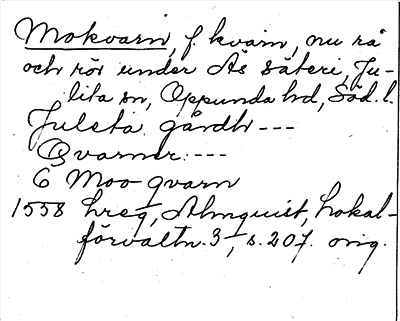 Mokvarn, f. kvarn, nu rå
och rör under Ås säteri, Ju-
lita sn, Oppunda hd, Söd. l.
Juleta gårdh ---
Qvarner: ---
6 Moo qvarn
1558 hreg, Almquist, Lokal-
förvaltn. 3, s. 207. orig.